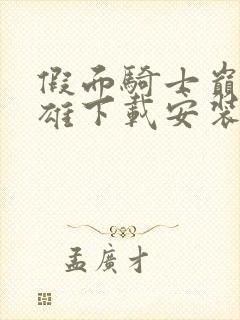 假面騎士巔
雄下載安裝
孟廣才